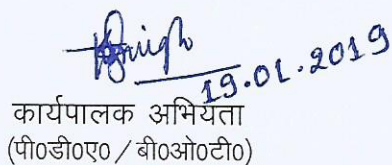 19.01.2019
कार्यपालक अभियंता
(पी0डी0ए0 / बी0ओ0टी0)